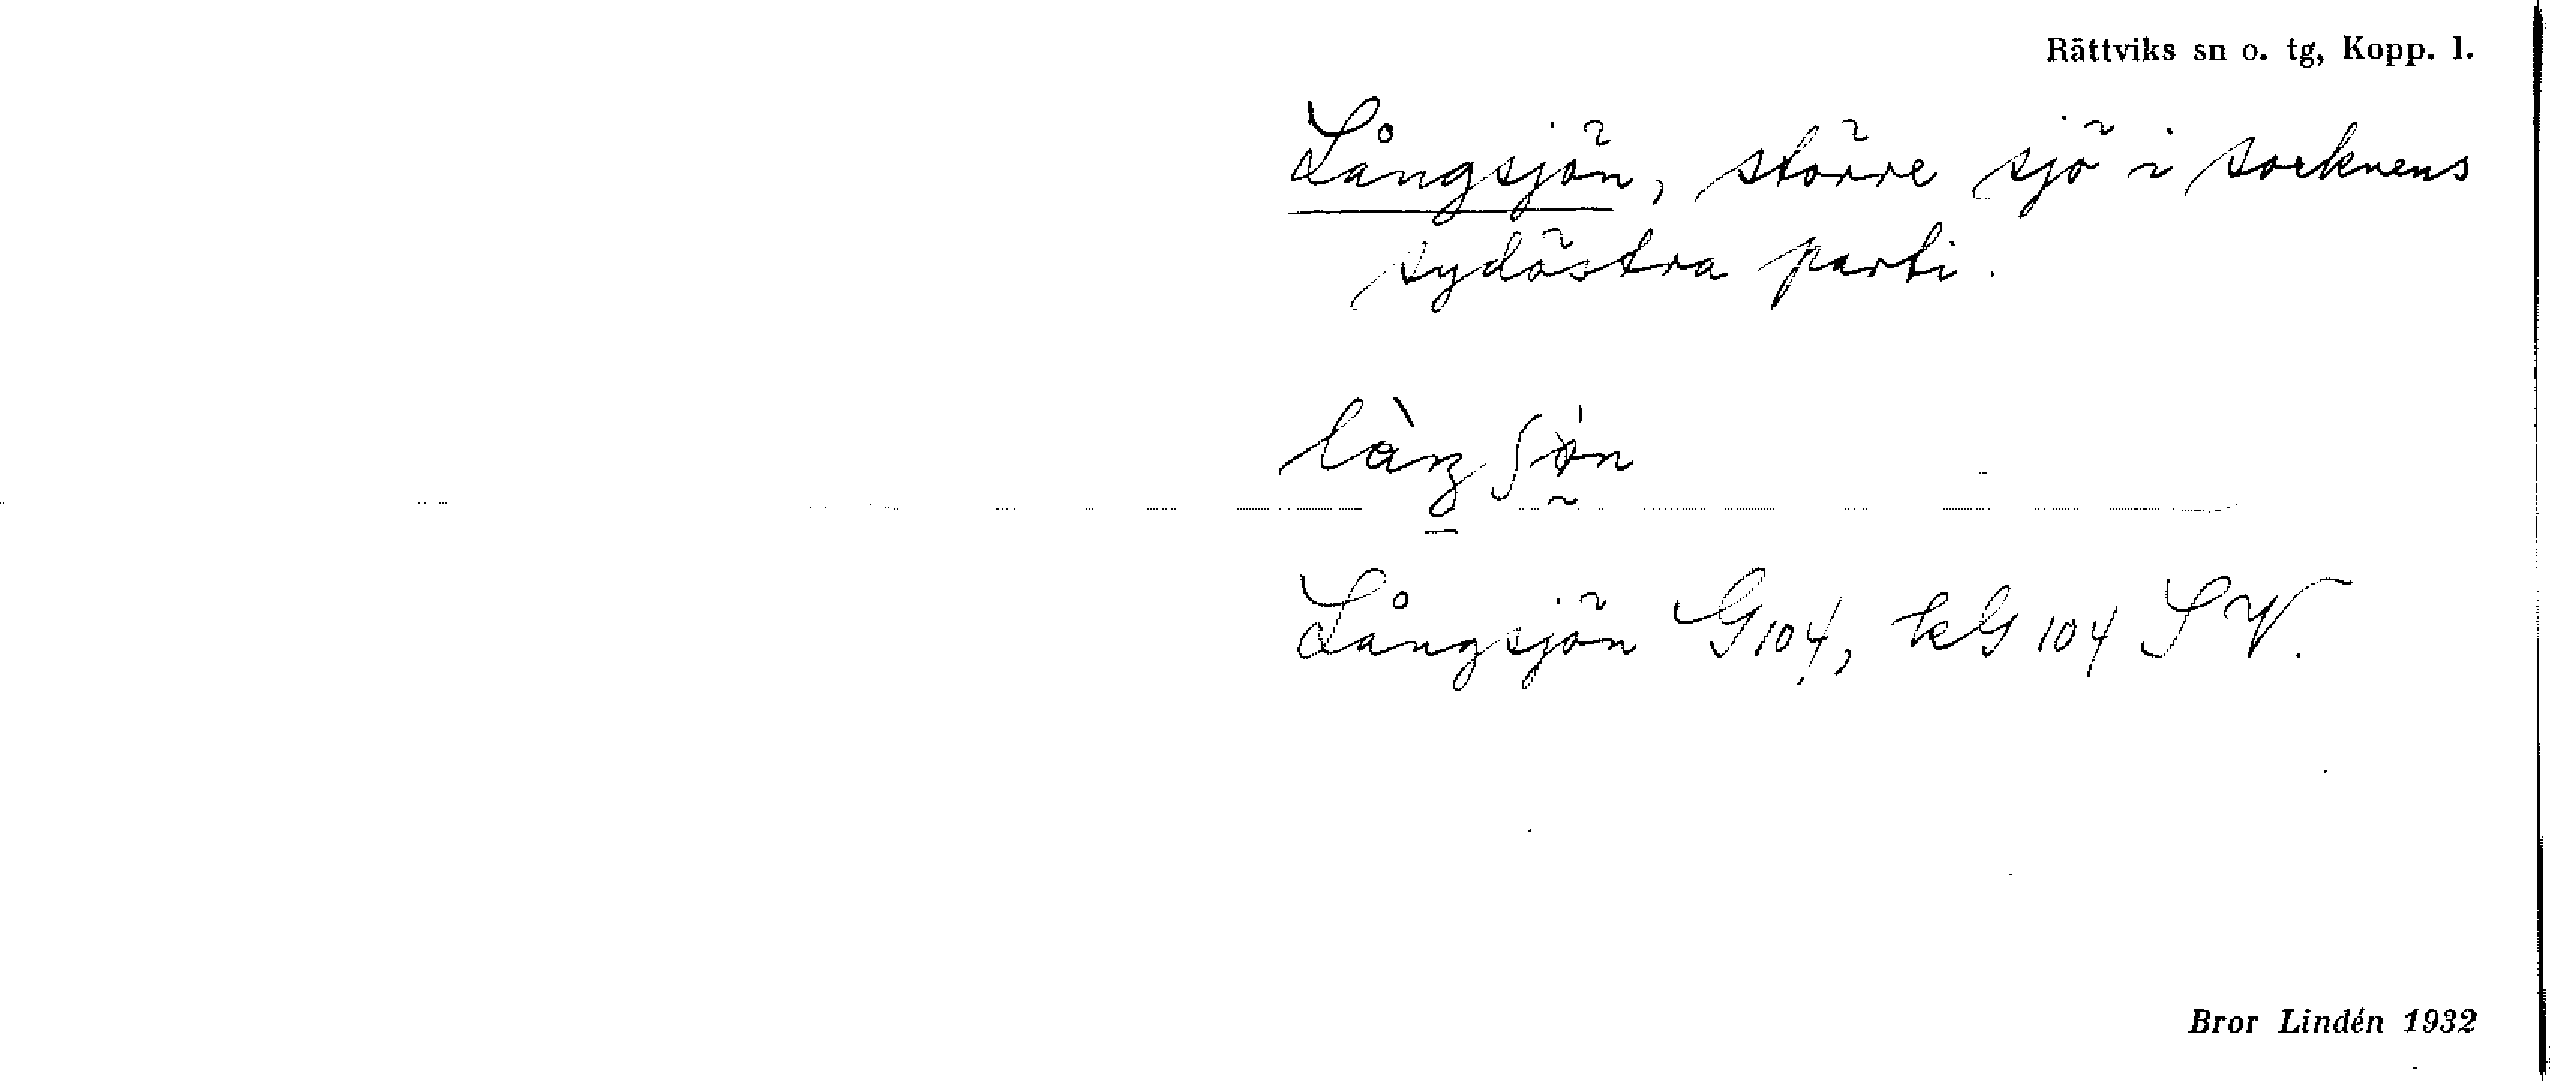 Rättviks sn o. tg, Kopp. l.
Långsjön, större sjö i socknens
sydöstra parti.
Långsjön G104, kG 104 SV.
Bror Lindén 1932